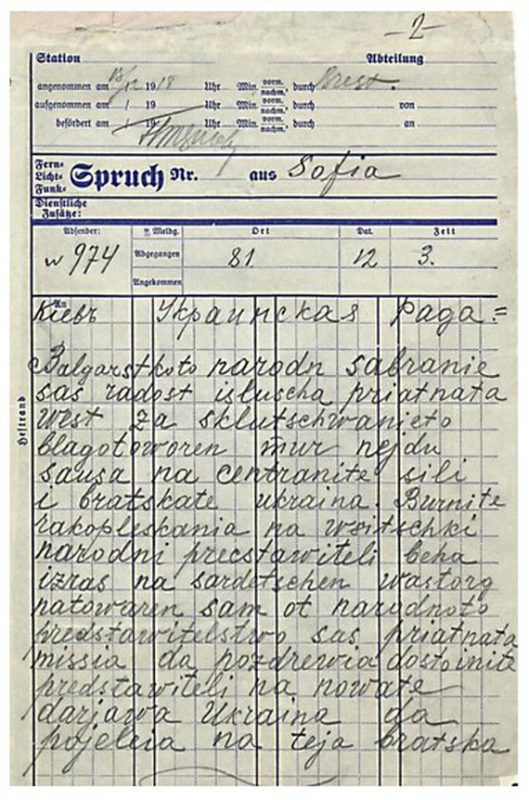 -2-
Station Abteilung
angenommen am 13/12 1918 Uhr Min. vorm. nachm., durch Brest.
aufgenommen am / 19 Uhr Min. vorm. nachm., durch von
befördert am / 19 Uhr Min. vorm. nachm., durch an
Fern-
Licht-
Funk-
Spruch Nr. aus Sofia
Dienstliche
Zusätze:
Absender: Meldg. Ort Dat. Zeit
974 Abgegangen 81 12 3.
Angekommen
An
Киевъ Украинская Рада =
Balgarskoto narodn sabranie
sas radost isluscha priatnata
west za sklutschwanieto
blagotoworen mur nejdu
sausa na centranite sili
i bratskate ukraina. Burnite
rakopleskania na wsitschki
narodni precstawiteli beha
izras na sardetschen wastorg
natowaren sam ot narodnoto
predstawitelstwo sas priatnata
missia da pozdrewia dostoinite
predstawiteli na nowate
darjawa Ukraina da
pojeleia na teja bratska
Heftrand